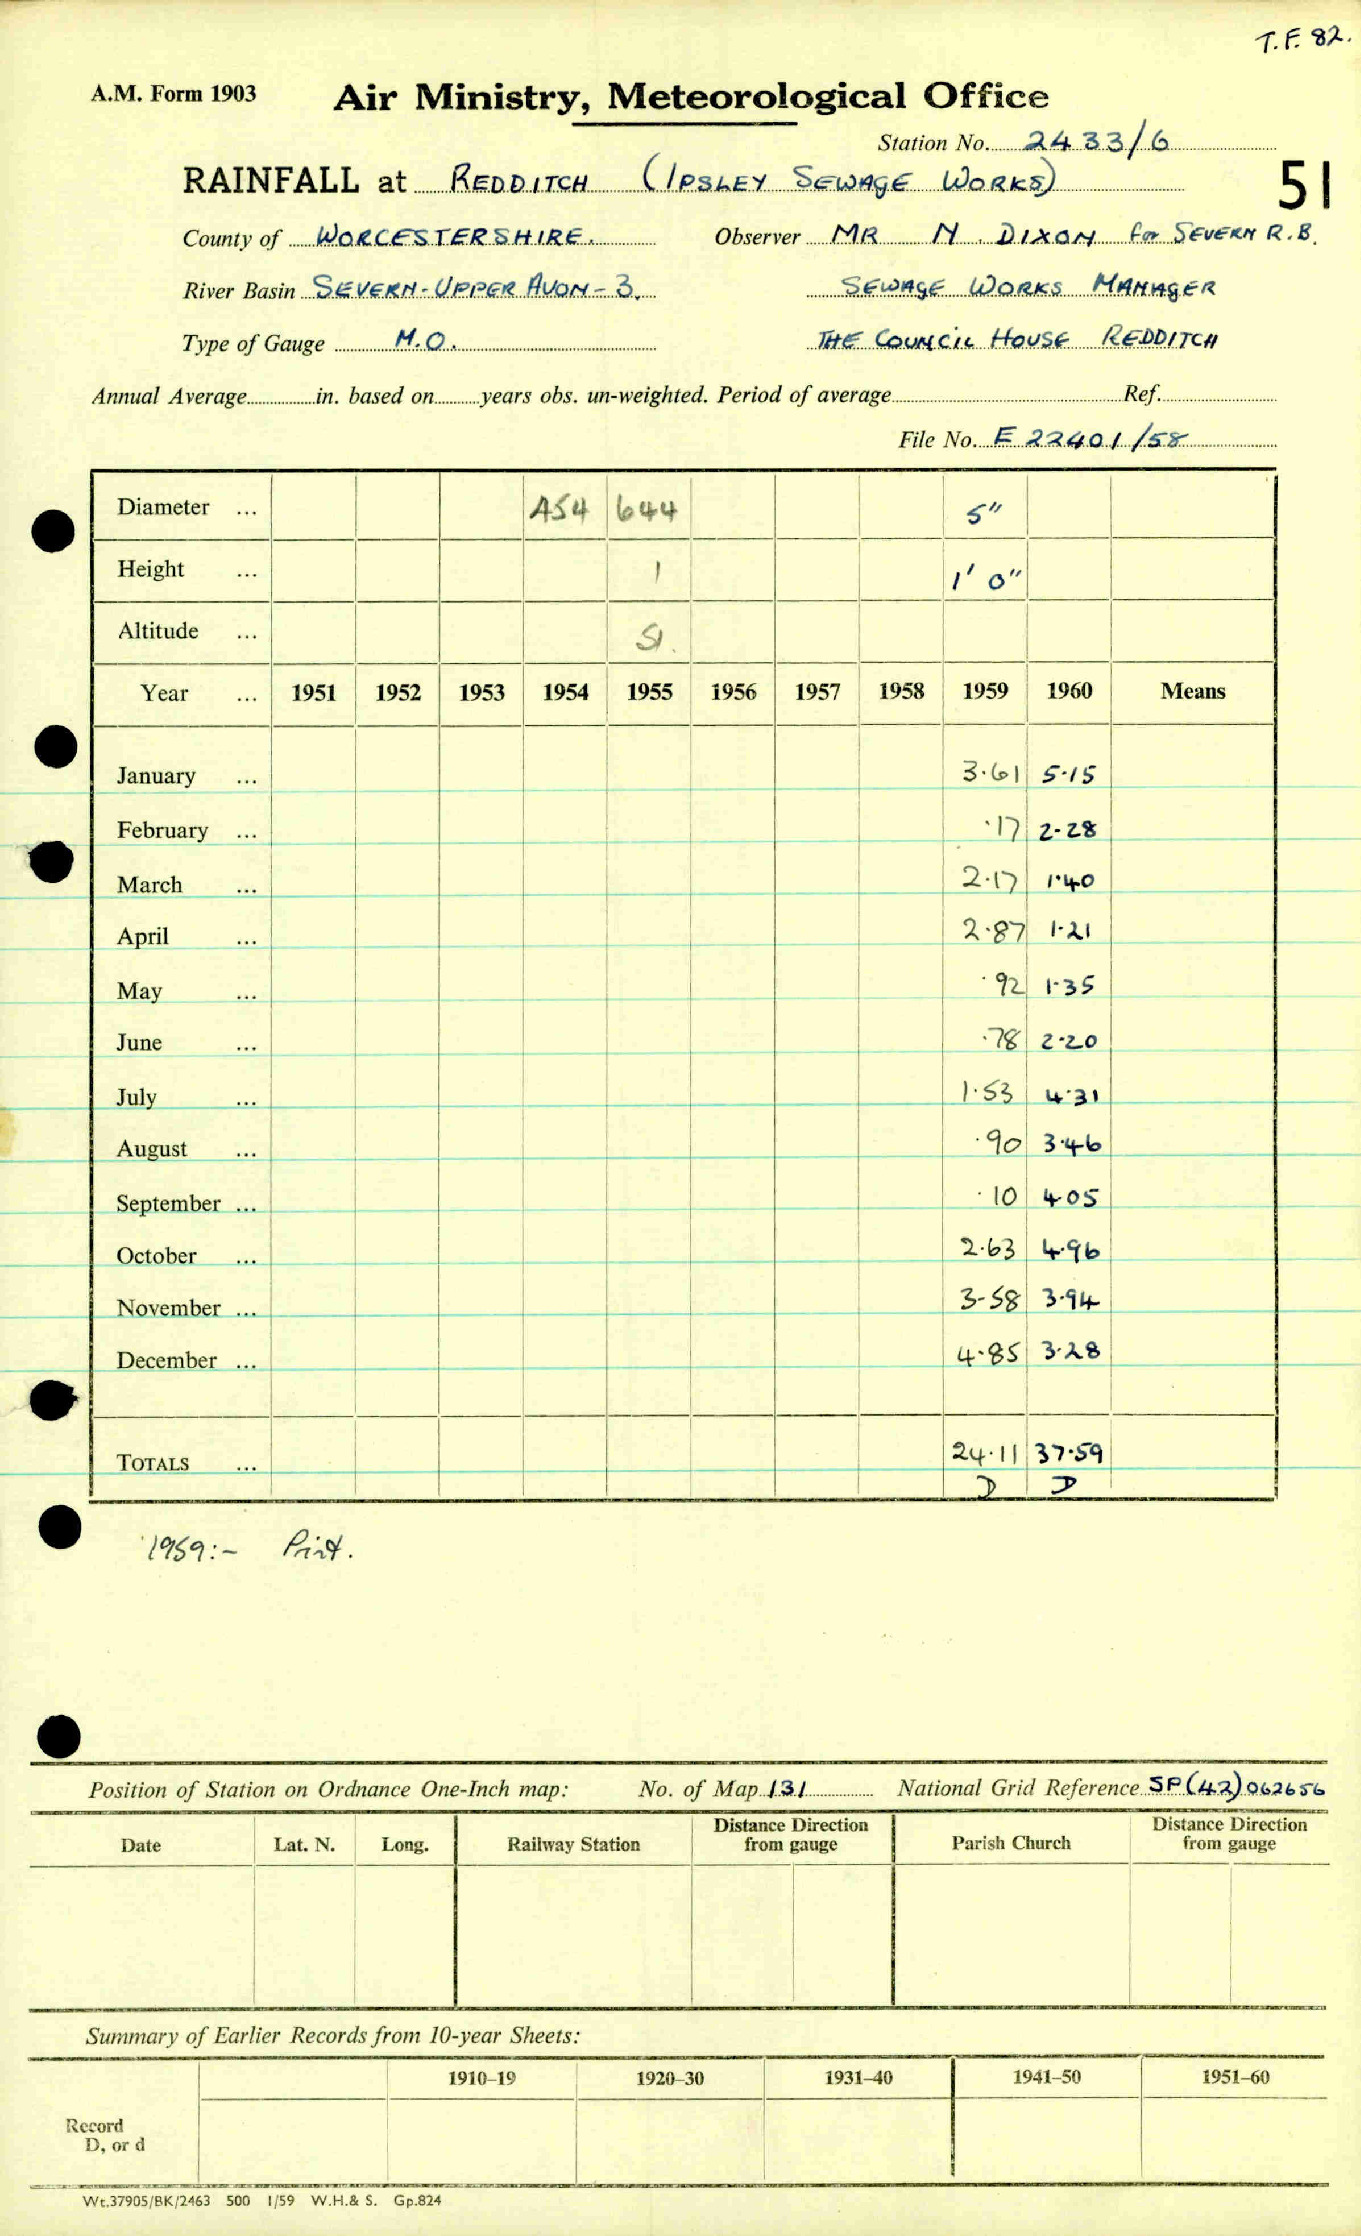 T.F. 82.
A.M. Form 1903 Air Ministry, Meteorological Office
Station No. 2433/6
RAINFALL at REDDITCH (IPSLEY SEWAGE WORKS) 51
County of WORCESTERSHIRE. Observer MR N. DIXON for SEVERN R.B.
River Basin SEVERN-UPPER AVON-3. SEWAGE WORKS MANAGER
Type of Gauge M.O. THE COUNCIL HOUSE REDDITCH
Annual Average in. based on years obs. un-weighted. Period of average Ref.
File No. E 22401/58
Diameter ... A54 644 5"
Height ... 1 1' 0"
Altitude ... SI.
Year ... 1951 1952 1953 1954 1955 1956 1957 1958 1959 1960 Means
January ... 3·61 5·15
February ... ·17 2·28
March ... 2·17 1·40
April ... 2·87 1·21
May ... ·92 1·35
June ... ·78 2·20
July ... 1·53 4·31
August ... ·90 3·46
September ... ·10 4·05
October ... 2·63 4·96
November ... 3·58 3·94
December ... 4·85 3·28
TOTALS ... 24·11 37·59
D D
1959:- Print.
Position of Station on Ordnance One-Inch map: No. of Map 131 National Grid Reference SP(42)062656
Date Lat. N. Long. Railway Station Distance Direction from gauge Parish Church Distance Direction from gauge
Summary of Earlier Records from 10-year Sheets:
1910–19 1920–30 1931–40 1941–50 1951–60
Record
D, or d
Wt.37905/BK/2463 500 1/59 W.H.& S. Gp.824